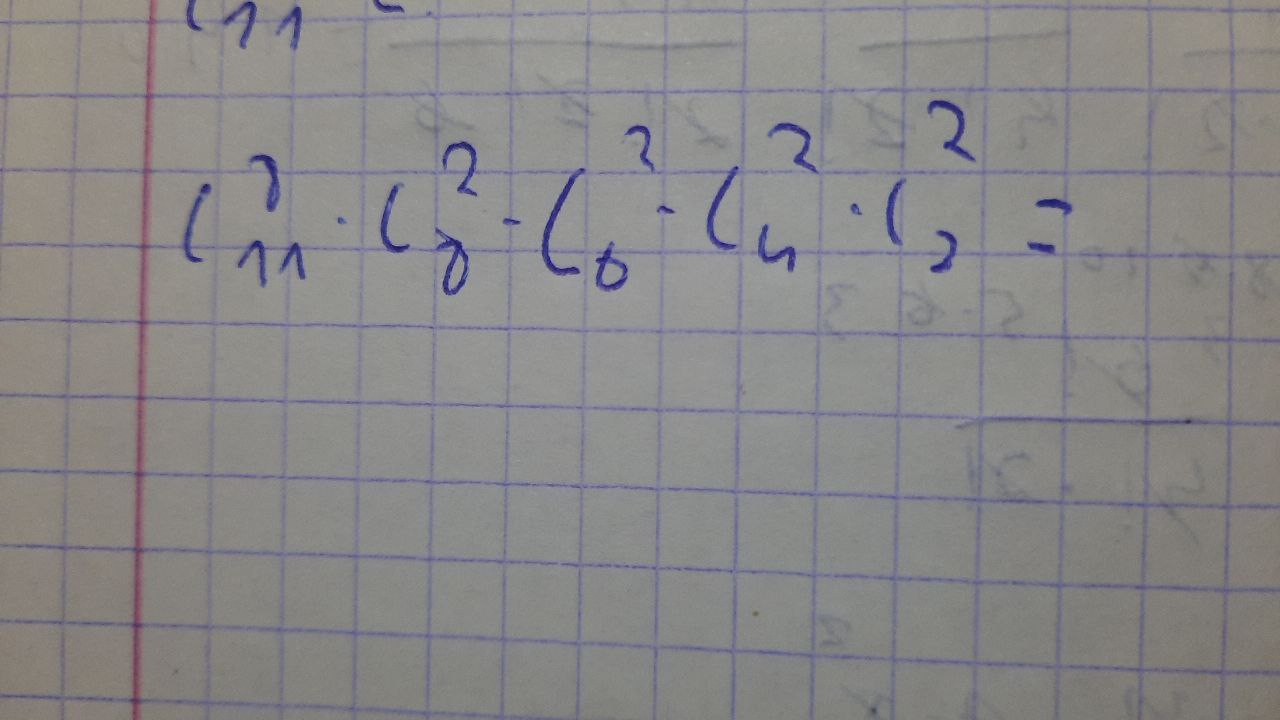 C₁₁
C₁₁⁸ · C₈² · C₆² · C₄² · C₂² =